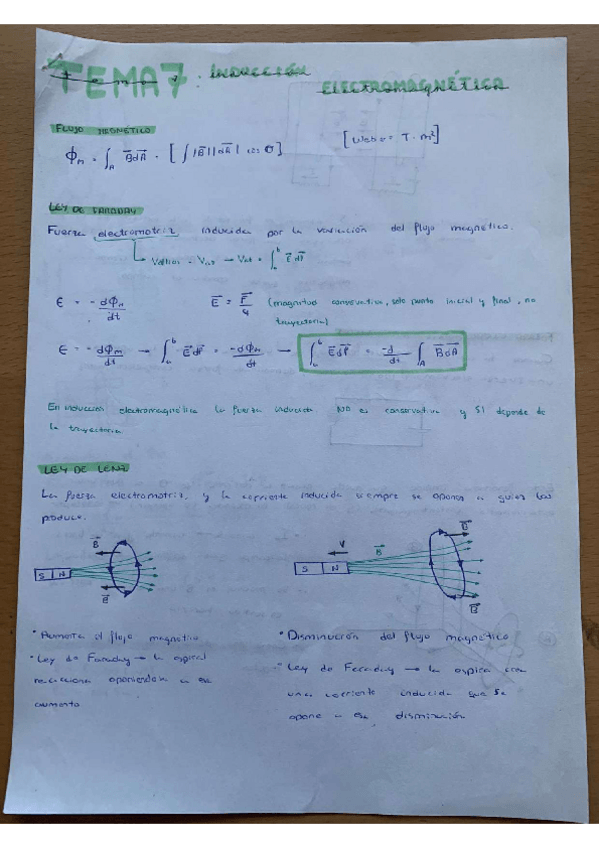 TEMA 7: INDUCCIÓN
ELECTROMAGNÉTICA
FLUJO MAGNÉTICO
Φm = ∫A B⃗ dA⃗ = [∫ |B⃗| |dA⃗| cos θ] [Weber = T · m²]
LEY DE FARADAY
Fuerza electromotriz inducida por la variación del flujo magnético.
→ Voltios = Vab → Vab = ∫ab E⃗ dl⃗
ε = - dΦm/dt E⃗ = F⃗/q (magnitud conservativa, solo punto inicial y final, no
trayectoria)
ε = - dΦm/dt → ∫ab E⃗ dl⃗ = -dΦm/dt → ∫ab E⃗ dl⃗ = -d/dt ∫A B⃗ dA⃗
En inducción electromagnética la fuerza inducida NO es conservativa y SI depende de
la trayectoria
LEY DE LENZ
La fuerza electromotriz, y la corriente inducida siempre se opones a quien las
produce.
B⃗ S N B⃗
V B⃗ B⃗ S N B⃗
• Aumenta el flujo magnético • Disminución del flujo magnético
• Ley de Faraday → la espiral
reacciona oponiendose a ese
aumento
• Ley de Faraday → la espira crea
una corriente inducida que se
opone a esa disminución